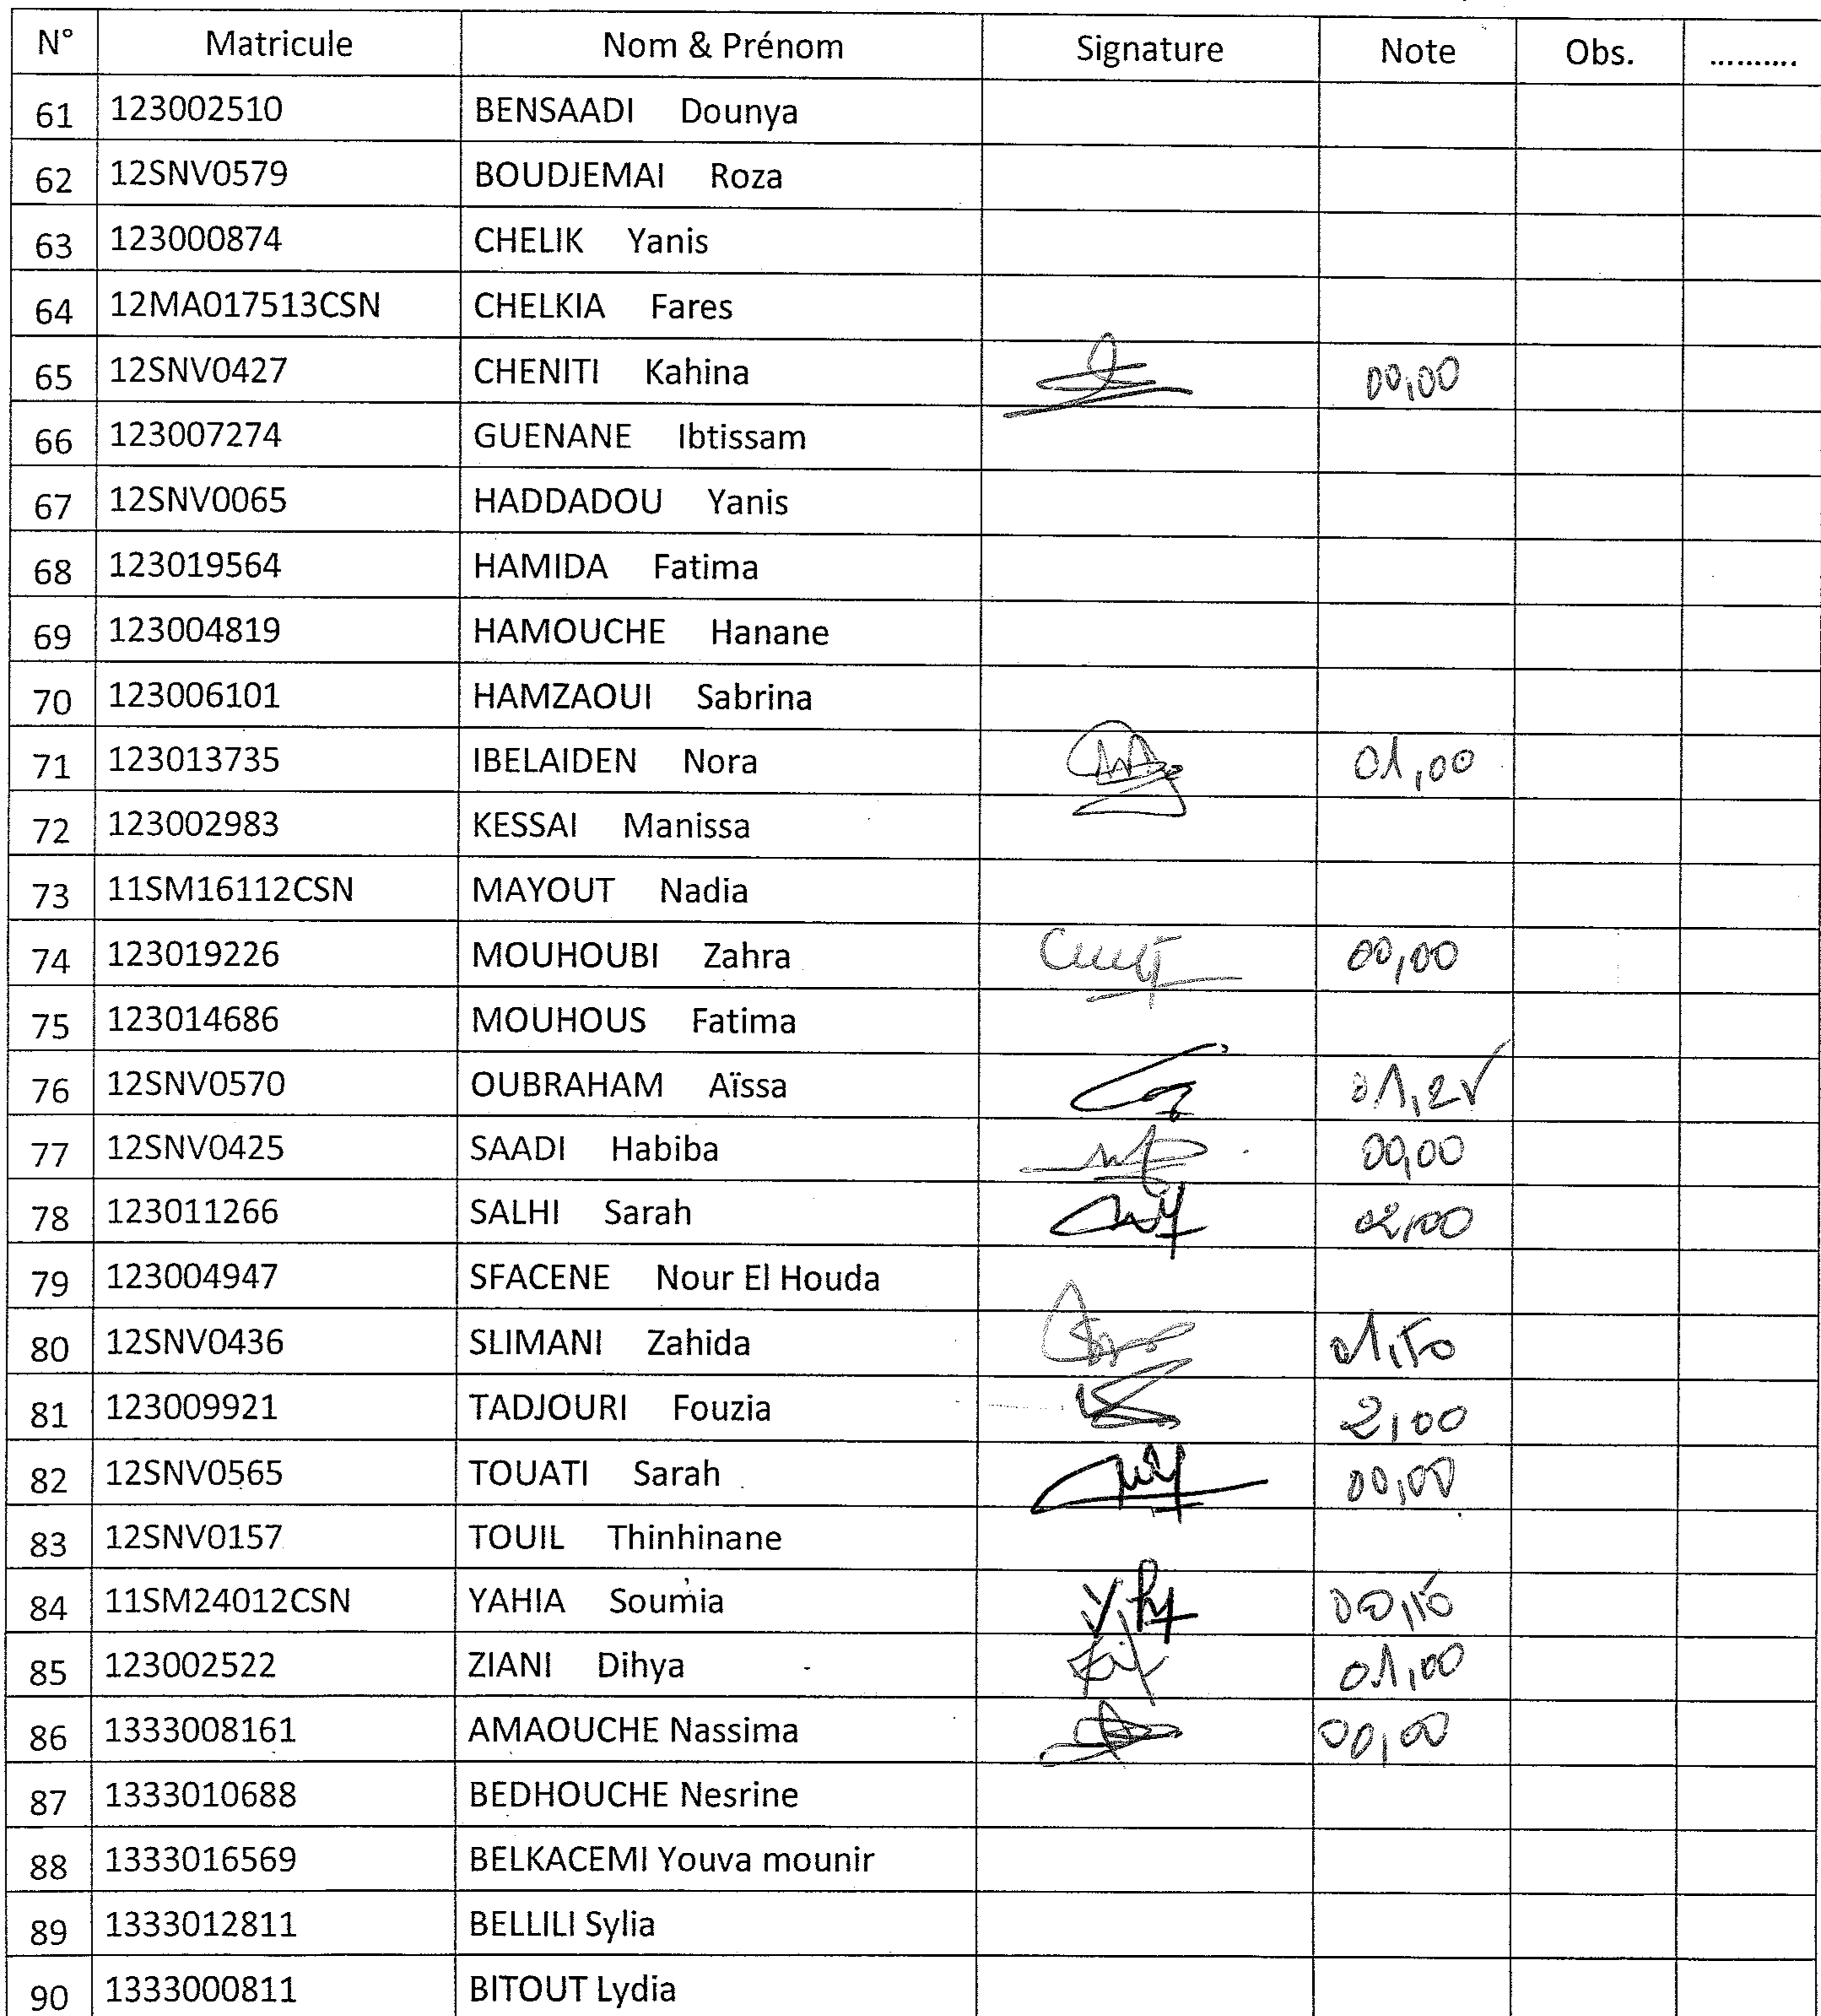 N° Matricule Nom & Prénom Signature Note Obs. ..........
61 123002510 BENSAADI Dounya
62 12SNV0579 BOUDJEMAI Roza
63 123000874 CHELIK Yanis
64 12MA017513CSN CHELKIA Fares
65 12SNV0427 CHENITI Kahina 00,00
66 123007274 GUENANE Ibtissam
67 12SNV0065 HADDADOU Yanis
68 123019564 HAMIDA Fatima
69 123004819 HAMOUCHE Hanane
70 123006101 HAMZAOUI Sabrina
71 123013735 IBELAIDEN Nora 01,00
72 123002983 KESSAI Manissa
73 11SM16112CSN MAYOUT Nadia
74 123019226 MOUHOUBI Zahra 00,00
75 123014686 MOUHOUS Fatima
76 12SNV0570 OUBRAHAM Aïssa 01,25
77 12SNV0425 SAADI Habiba 00,00
78 123011266 SALHI Sarah 02,00
79 123004947 SFACENE Nour El Houda
80 12SNV0436 SLIMANI Zahida 01,50
81 123009921 TADJOURI Fouzia 2,00
82 12SNV0565 TOUATI Sarah 00,00
83 12SNV0157 TOUIL Thinhinane
84 11SM24012CSN YAHIA Soumia
85 123002522 ZIANI Dihya 01,00
86 1333008161 AMAOUCHE Nassima 00,00
87 1333010688 BEDHOUCHE Nesrine
88 1333016569 BELKACEMI Youva mounir
89 1333012811 BELLILI Sylia
90 1333000811 BITOUT Lydia